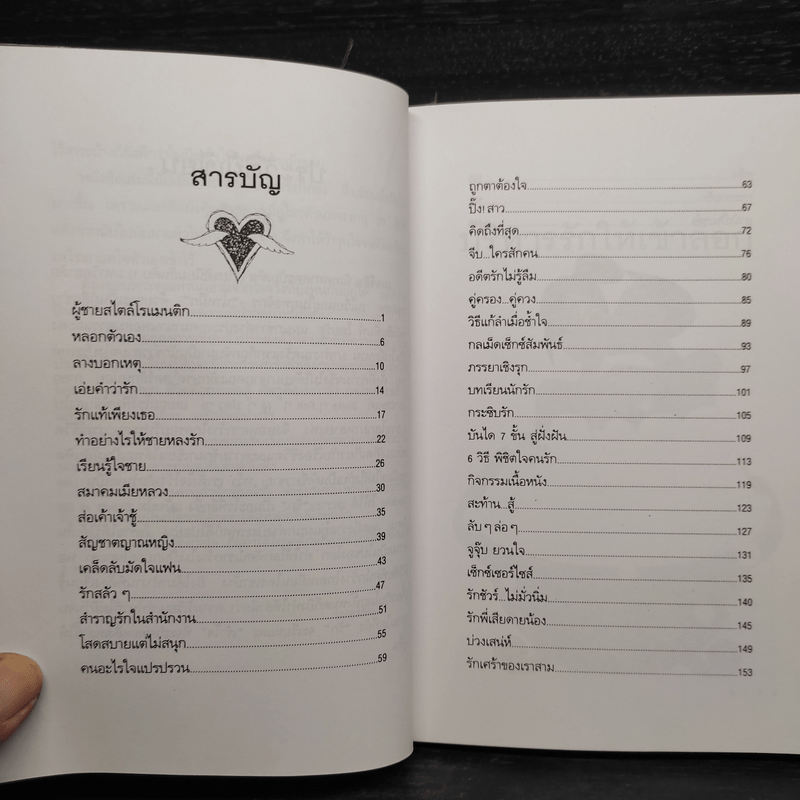 สารบัญ
ผู้ชายสไตล์โรแมนติก 1
หลอกตัวเอง 6
ลางบอกเหตุ 10
เอ่ยคำว่ารัก 14
รักแท้เพียงเธอ 17
ทำอย่างไรให้ชายหลงรัก 22
เรียนรู้ใจชาย 26
สมาคมเมียหลวง 30
ส่อเค้าเจ้าชู้ 35
สัญชาตญาณหญิง 39
เคล็ดลับมัดใจแฟน 43
รักสลัว ๆ 47
สำราญรักในสำนักงาน 51
โสดสบายแต่ไม่สนุก 55
คนอะไรใจแปรปรวน 59
ถูกตาต้องใจ 63
ปิ๊ง! สาว 67
คิดถึงที่สุด 72
จีบ...ใครสักคน 76
อดีตรักไม่รู้ลืม 80
คู่ครอง...คู่ควง 85
วิธีแก้ลำเมื่อช้ำใจ 89
กลเม็ดเซ็กซ์สัมพันธ์ 93
ภรรยาเชิงรุก 97
บทเรียนนักรัก 101
กระซิบรัก 105
บันได 7 ขั้น สู่ฝั่งฝัน 109
6 วิธี พิชิตใจคนรัก 113
กิจกรรมเนื้อหนัง 119
สะท้าน...สู้ 123
ลับ ๆ ล่อ ๆ 127
จูจุ๊บ ยวนใจ 131
เซ็กซ์เซอร์ไซส์ 135
รักชัวร์...ไม่มั่วนิ่ม 140
รักพี่เสียดายน้อง 145
บ่วงเสน่ห์ 149
รักเศร้าของเราสาม 153